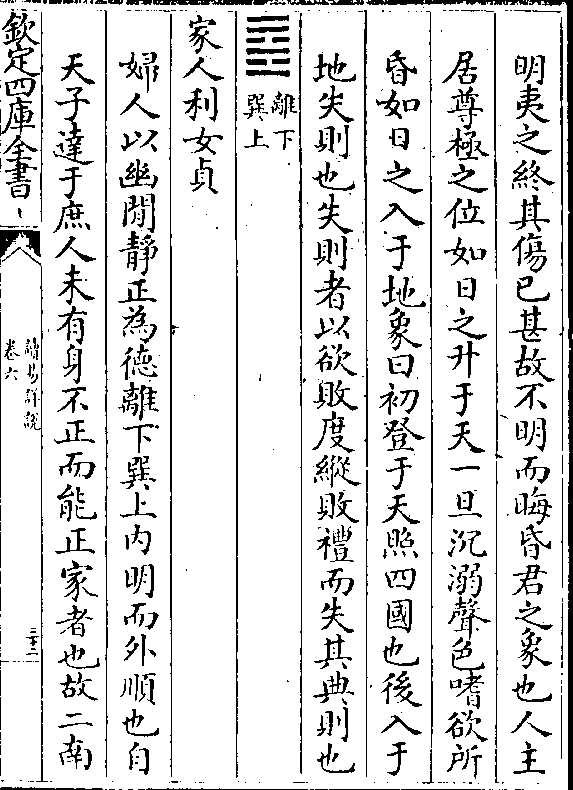 明夷之終其傷已甚故不明而晦昏君之象也人主
居尊極之位如日之升于天一旦沉溺聲色嗜欲所
昏如日之入于地象曰初登于天照四國也後入于
地失則也失則者以欲敗度縱敗禮而失其典則也
䷤離下
巽上
家人利女貞
婦人以幽閒靜正為德離下巽上内明而外順也自
天子達于庶人未有身不正而能正家者也故二南
欽定四庫全書
讀易詳說
卷六